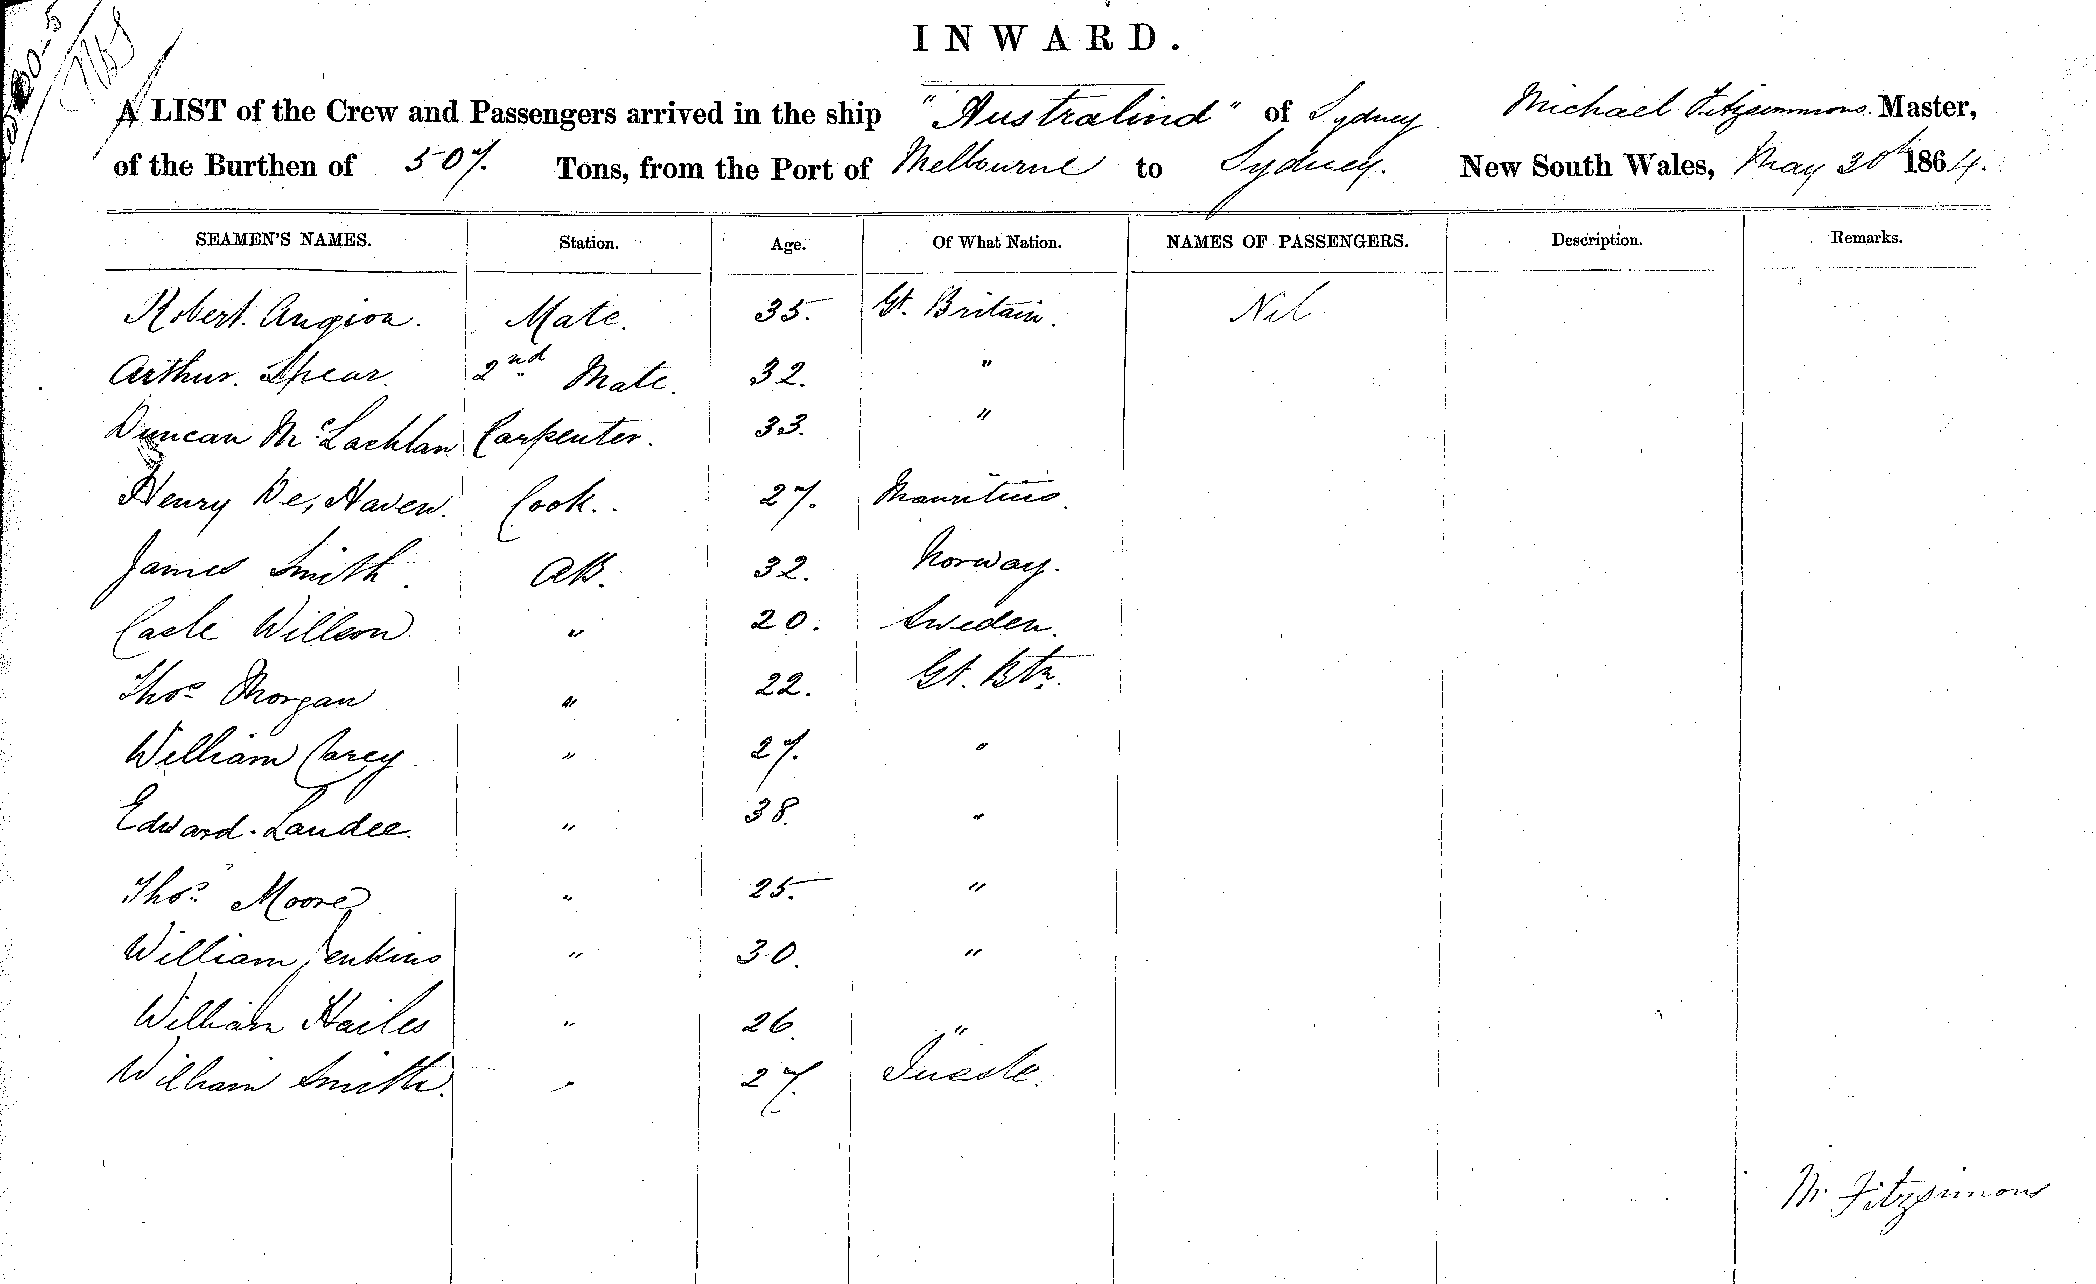 INWARD.
A LIST of the Crew and Passengers arrived in the ship "Australind" of Sydney Michael Fitzsimmons. Master,
of the Burthen of 507. Tons, from the Port of Melbourne to Sydney. New South Wales, May 30th 1864.
SEAMEN'S NAMES. Station. Age. Of What Nation. NAMES OF PASSENGERS. Description. Remarks.
Robert. Mate. 35. Gt. Britain. Nil
Arthur. Spear. 2nd Mate. 32. "
Duncan McLachlan Carpenter. 33. "
Henry De, Haven. Cook. 27. Mauritius.
James Smith. AB. 32. Norway.
Willson " 20. Sweden.
Thos Morgan " 22. Gt. Btn.
William Carey " 27. "
Edward. Landee. " 38. "
Thos. Moore " 25. "
William Jenkins " 30. "
William Hailes " 26. "
William Smith. " 27.
M. Fitzsimons